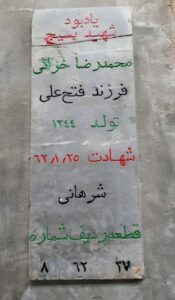 یادبود
شهید بسیج
محمدرضا خزائی
فرزند فتح علی
تولد ۱۳۴۴
شهادت ۶۲/۱/۲۵
شرهانی
قطعه ردیف شماره
۸ ۶۲ ۲۷